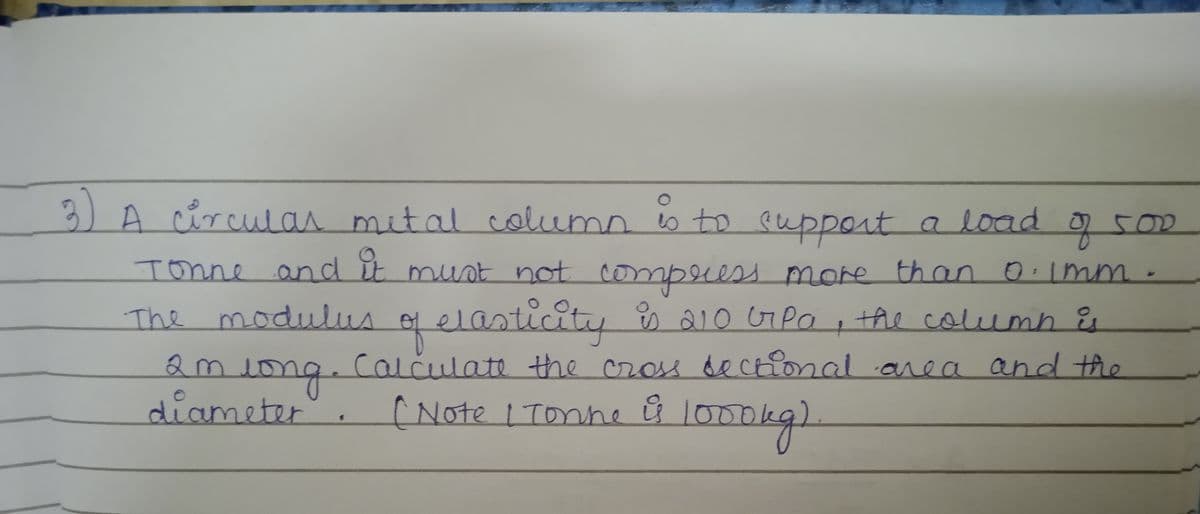 3) A circular metal column is to support a load of 500
Tonne and it must not compress more than 0.1mm.
The modulus of elasticity is 210 GPa, the column is
2m long. Calculate the cross sectional area and the
diameter. (Note 1 Tonne is 1000kg).